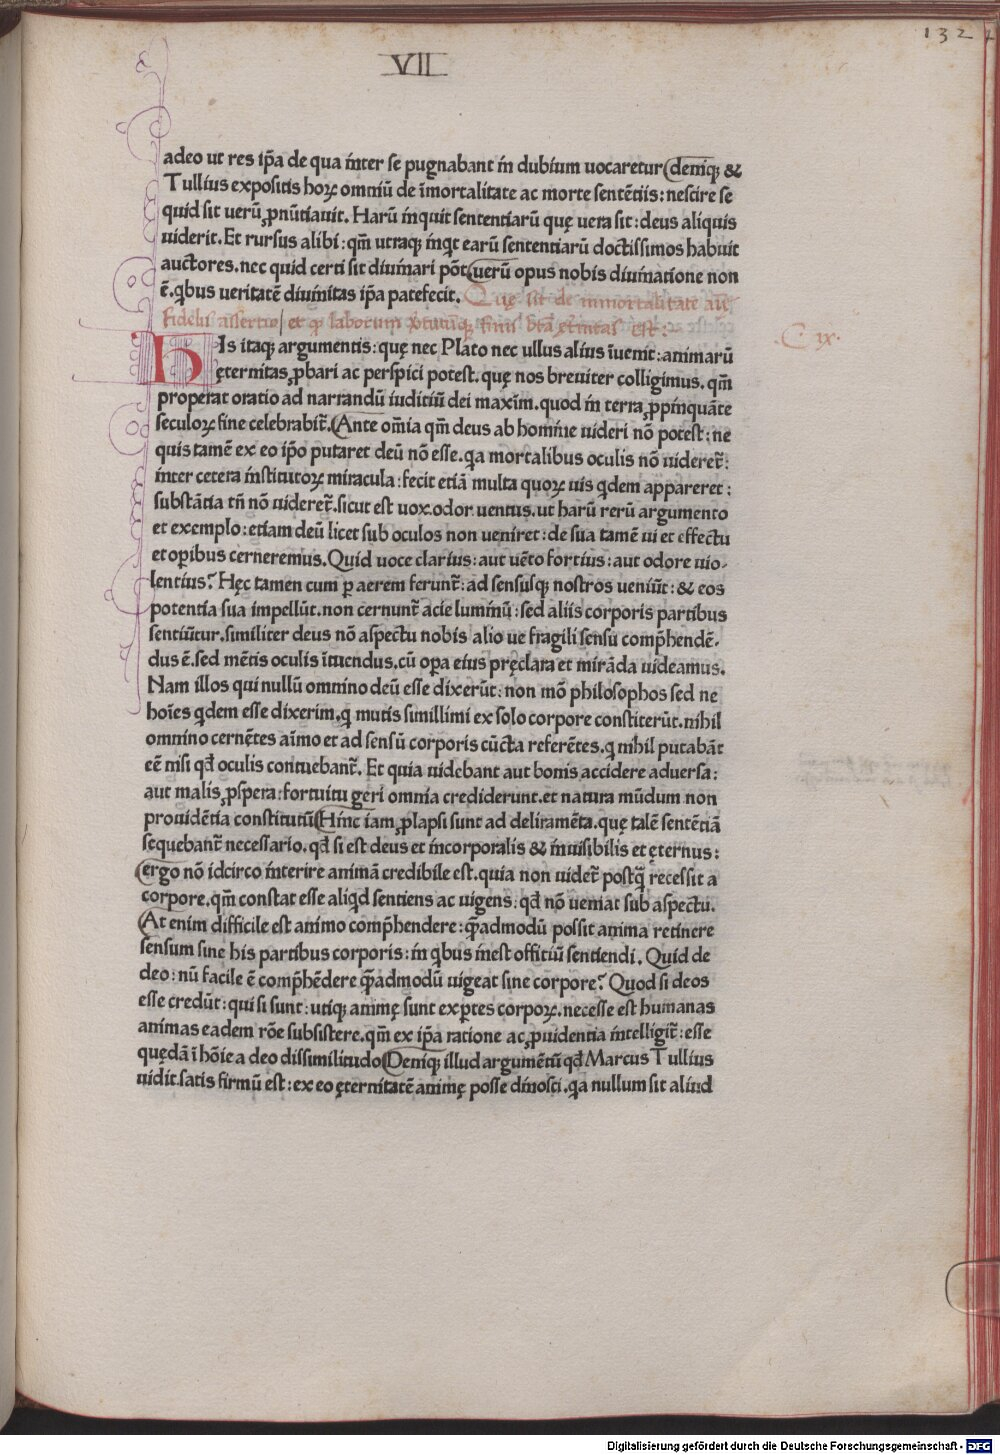 132
VII
adeo ut res ip̄a de qua inter se pugnabant in dubium uocaretur (deniq; &
Tullius expositis hoꝝ omniū de īmortalitate ac morte sentētiis: nescire se
quid sit uerū ꝓnūtiauit. Harū inquit sententiarū quę uera sit: deus aliquis
uiderit. Et rursus alibi: qm̄ utraq; inqt earū sententiarū doctissimos habuit
auctores. nec quid certi sit diuinari pōt (uerū opus nobis diuinatione non
ē. qbus ueritatē diuinitas ip̄a patefecit. Quę sit de immortalitate aīę
fidelis assertio / et
C. ix.
HIs itaq; argumentis: quę nec Plato nec ullus alius īuenit: animarū
ęternitas ꝓbari ac perspici potest. quę nos breuiter colligimus. qm̄
properat oratio ad narrandū iuditiū dei maxim. quod in terra ꝓpinquāte
seculoꝝ fine celebrabit̄. (Ante om̄ia qm̄ deus ab homine uideri nō potest: ne
quis tamē ex eo ip̄o putaret deū nō esse. qa mortalibus oculis nō uideret̄:
inter cetera institutoꝝ miracula: fecit etiā multa quoꝝ uis qdem appareret:
substātia tn̄ nō uideret̄. sicut est uox. odor uentus. ut harū rerū argumento
et exemplo: etiam deū licet sub oculos non ueniret: de sua tamē ui et effectu
et oꝑibus cerneremus. Quid uoce clarius: aut uēto fortius: aut odore uio-
lentius? Hęc tamen cum ꝑ aerem ferunt̄: ad sensusq; nostros ueniūt: & eos
potentia sua impellūt. non cernunt̄ acie luminū: sed aliis corporis partibus
sentiūtur. similiter deus nō aspectu nobis alio ue fragili sensu comp̄hendē-
dus ē. sed mētis oculis ītuendus. cū oꝑa eius pręclara et mirāda uideamus.
Nam illos qui nullū omnino deū esse dixerūt: non mō philosophos sed ne
hoīes qdem esse dixerim. q mutis simillimi ex solo corpore constiterūt. nihil
omnino cernētes aīmo et ad sensū corporis cūcta referētes. q nihil putabāt
eē nisi qđ oculis contuebant̄. Et quia uidebant aut bonis accidere aduersa:
aut malis ꝓspera: fortuitu geri omnia crediderunt. et natura mūdum non
prouidētia constitutū (Hinc iam ꝓlapsi sunt ad deliramēta. quę talē sentētiā
sequebant̄ necessario. qđ si est deus et incorporalis & inuisibilis et ęternus:
(ergo nō idcirco interire animā credibile est. quia non uidet̄ postq̄ recessit a
corpore. qm̄ constat esse aliqd sentiens ac uigens: qđ nō ueniat sub aspectu.
(At enim difficile est animo comp̄hendere: q̄admodū possit anima retinere
sensum sine his partibus corporis: in qbus inest offitiū sentiendi. Quid de
deo: nū facile ē comp̄hēdere q̄admodū uigeat sine corpore? Quod si deos
esse credūt: qui si sunt: utiq; animę sunt exꝑtes corpoꝝ. necesse est humanas
animas eadem rōe subsistere. qm̄ ex ip̄a ratione ac ꝓuidentia intelligit̄: esse
quędā ī hōie a deo dissimilitudo (Deniq; illud argumētū qđ Marcus Tullius
uidit. satis firmū est: ex eo ęternitatē animę posse dinosci. qa nullum sit aliud
Digitalisierung gefördert durch die Deutsche Forschungsgemeinschaft - DFG